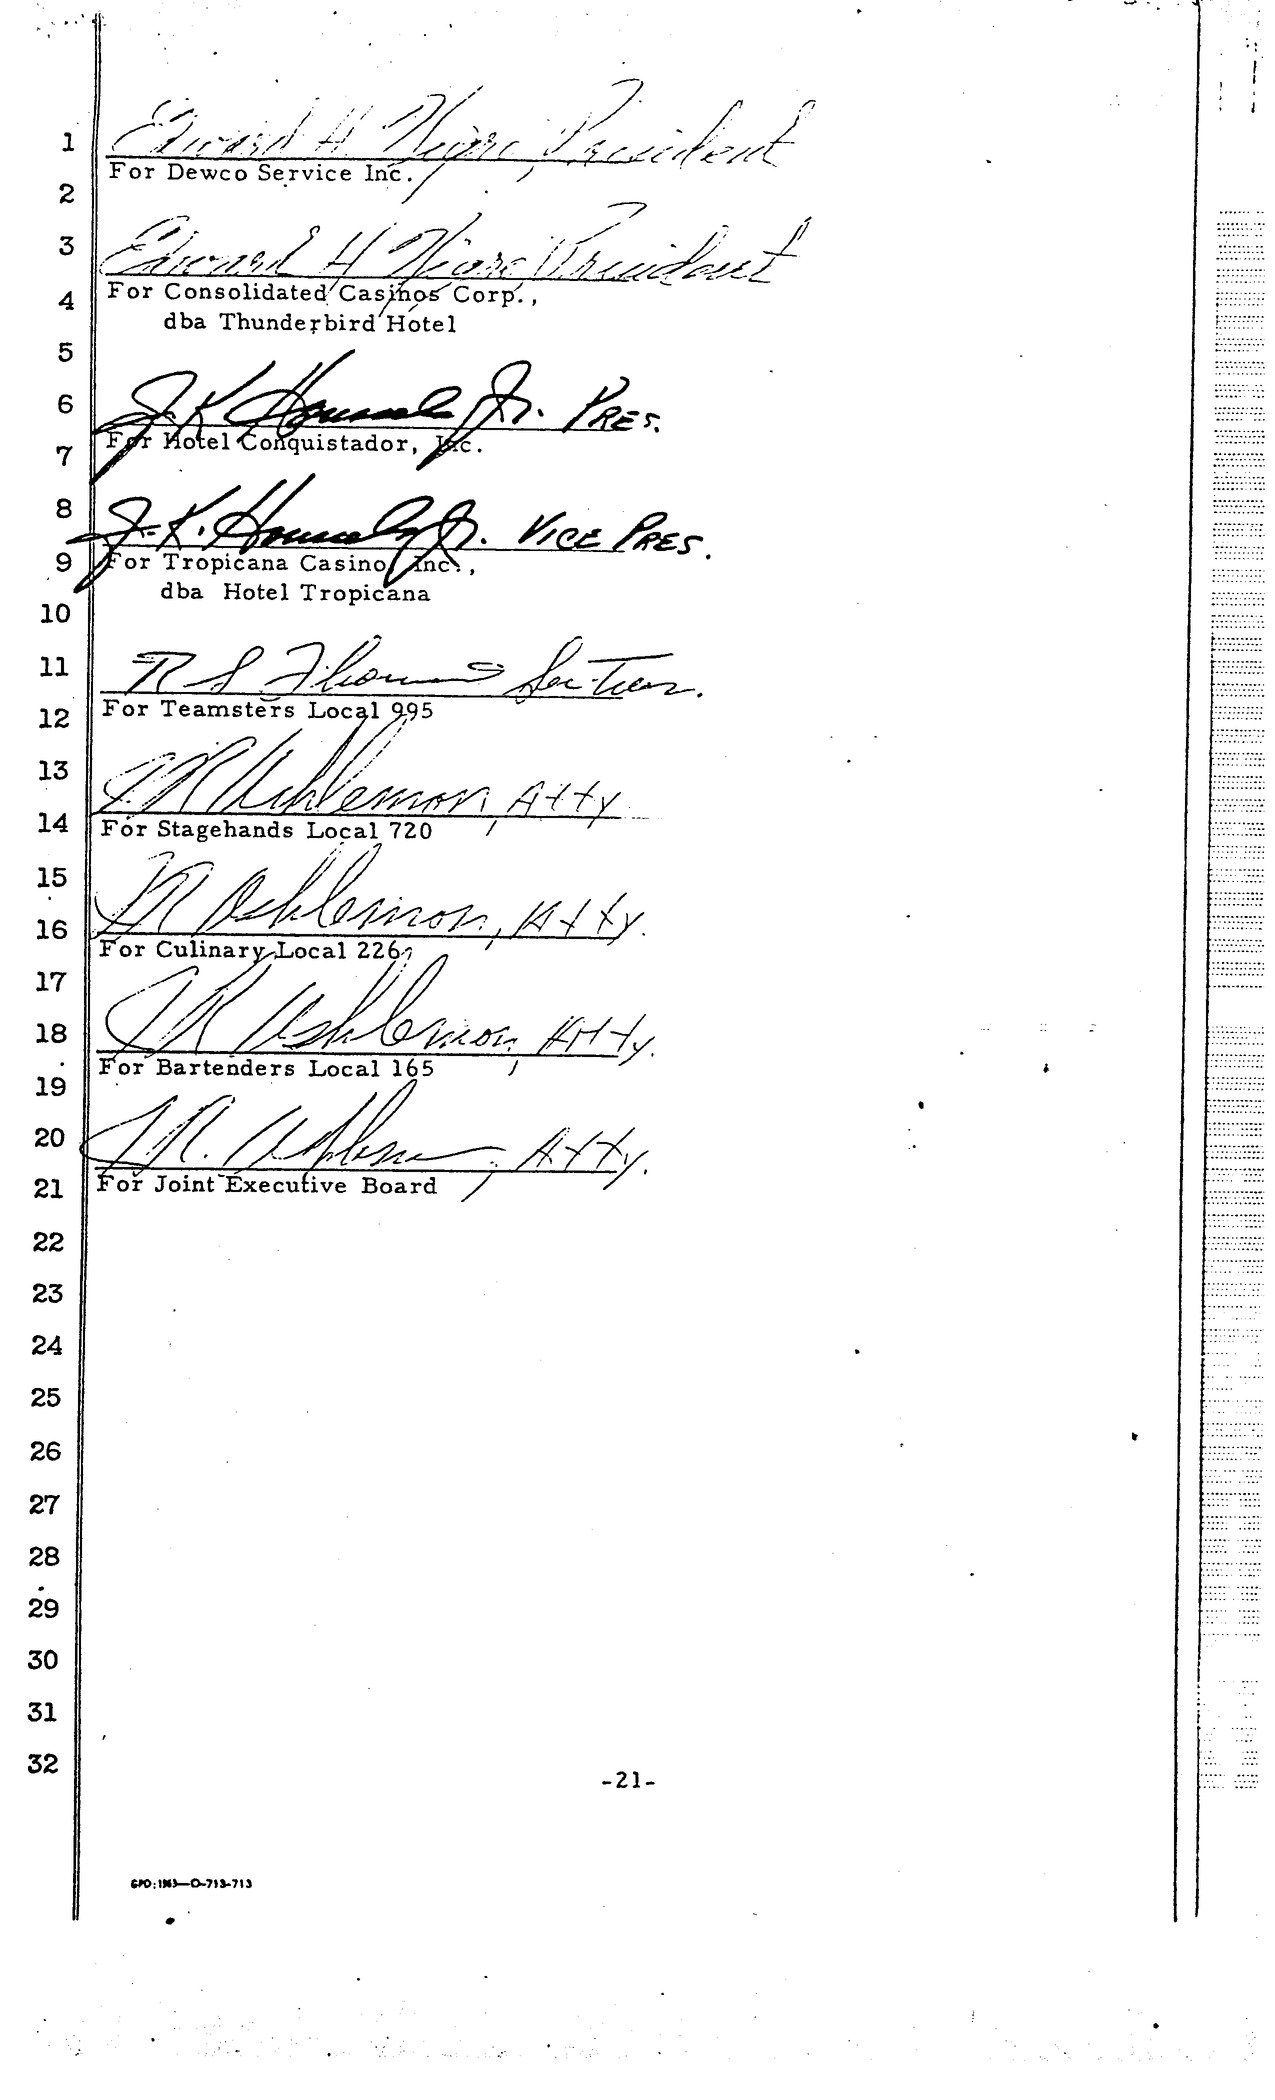 1 Edward H. Nigro, President
For Dewco Service Inc.
2
3 Edward H Nigro President
4 For Consolidated Casinos Corp.,
dba Thunderbird Hotel
5
6 J. K. Jr. PRES.
7 For Hotel Conquistador, Inc.
8 J. K. Jr. VICE PRES.
9 For Tropicana Casino, Inc.,
dba Hotel Tropicana
10
11 R S Thomas Sec-Treas.
12 For Teamsters Local 995
13 Ashlemon, Atty
14 For Stagehands Local 720
15 Ashlemon, Atty.
16 For Culinary Local 226
17
18 Ashlemon, Atty.
For Bartenders Local 165
19
20 Atty.
21 For Joint Executive Board
22
23
24
25
26
27
28
29
30
31
32
-21-
GPO: 1963—O-713-713